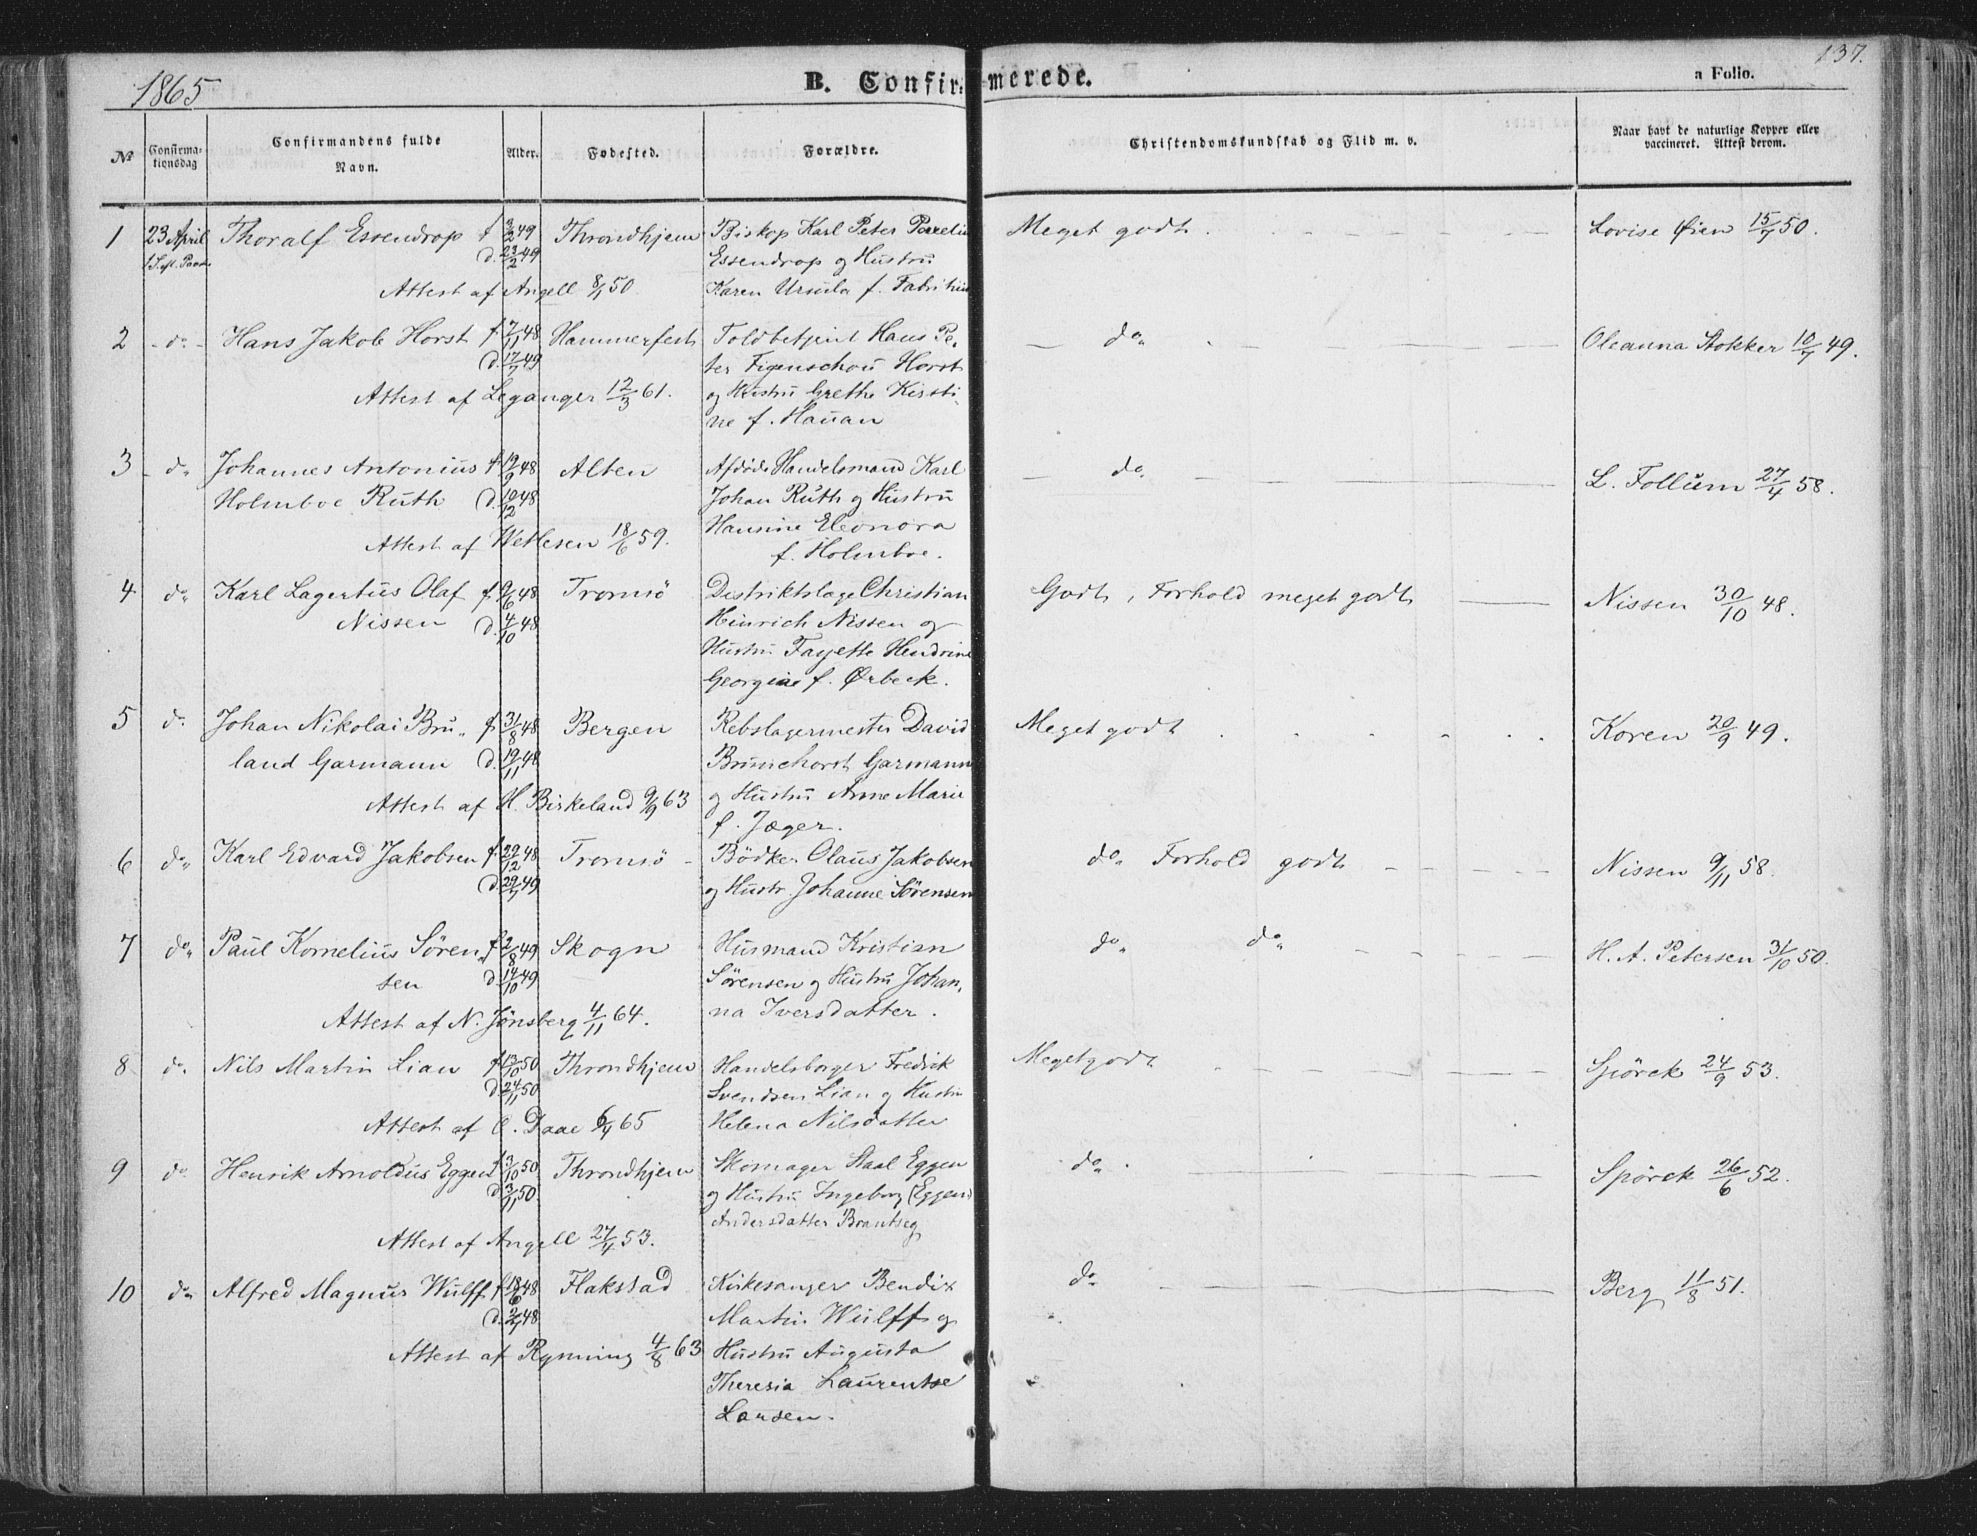 1865
B. Confirmerede.
a Folio.
137.
No
Confirmationsdag
Confirmandens fulde Navn.
Alder.
Fødested.
Forældre.
Christendomskundskab og Flid m. v.
Naar havt de naturlige Kopper eller vaccineret. Attest derom.
1 23 April Thoralf Essendrop f 3/2 49 Throndhjem Biskop Karl Peter Meget godt. Lovise Øien 15/7 50.
d. 23/2 49 Essendrop og Hustru
Attest af Angell 8/1 50 Karen Ursula f. Fabritius
2 do Hans Jakob Horst f 7/11 48 Hammerfest Toldbetjent Hans Pe- do Oleanna Stokker 10/7 49.
d. 17/7 49 ter Figenschou Horst
Attest af Leganger 12/3 61. og Hustru Grethe Kirsti-
ne f. Hauan
3 do Johannes Antonius f 19/9 48 Alten Afdøde Handelsmand Karl do L. Follum 27/4 58.
Holmboe Ruth d. 10/12 48 Johan Ruth og Hustru
Attest af Wetlesen 18/6 59. Hansine Eleonora
f. Holmboe.
4 do Karl Lagertus Olaf f. 9/6 48 Tromsö Distriktslæge Christian Godt, Forhold meget godt Nissen 30/10 48.
Nissen d. 4/10 48 Heinrich Nissen og
Hustru Fayette Hendrine
Georgine f. Ørbeck.
5 do Johan Nikolai Bru- f. 31/8 48 Bergen Rebslagermester David Meget godt Koren 20/9 49.
land Garmann d. 19/11 48 Brunchorst Garmann
Attest af H. Birkeland 9/9 63 og Hustru Anne Marie
f. Jæger.
6 do Karl Edvard Jakobsen f. 29/12 48 Tromsö Bödker Olaus Jakobsen do Forhold godt Nissen 9/11 58.
d. 29/7 49 og Hustr. Johanne Sörensen
7 do Paul Kornelius Sören- f 2/8 49 Skogn Husmand Kristian do do H. A. Petersen 31/10 50.
sen d. 14/10 49 Sörensen og Hustru Johan-
Attest af N. Jönsberg 4/11 64. na Iversdatter.
8 do Nils Martin Lian f 13/10 50 Throndhjem Handelsborger Fredrik Meget godt Spörck 24/9 53.
d. 24/11 50 Svendsen Lian og Hustru
Attest af C. Daae 6/4 65 Helena Nilsdatter
9 do Henrik Arnoldus Eggen f 3/10 50 Throndhjem Skomager Staal Eggen do Spörck 26/6 52.
d. 3/11 50. og Hustru Ingeborg (Eggen)
Andersdatter
Attest af Angell 27/4 53.
10 do Alfred Magnus Wulff f 18/6 48 Flakstad Kirkesanger Bendix do Berg 11/8 51.
d. 2/7 48 Martin Wulff og
Attest af Rynning 4/8 63 Hustru Augusta
Theresia Laurentse
Larsen.